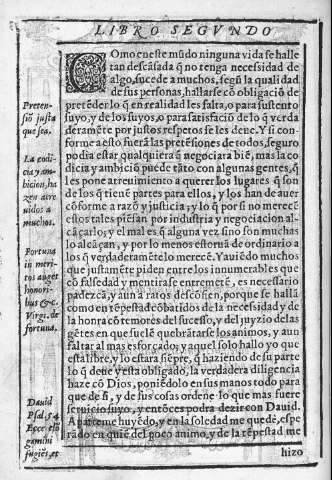 LIBRO SEGVNDO
COmo en este mũdo ninguna vida se halle
tan descãsada q̃ no tenga necessidad de
algo, sucede a muchos, segũ la qualidad
de sus personas, hallarse cõ obligaciõ de
pretẽder lo q̃ en realidad les falta, o para sustento
suyo, y de los suyos, o para satisfaciõ de lo q̃ verda
deramẽte por justos respetos se les deue. Y si con-
forme a esto fuerã las pretẽsiones de todos, seguro
podia estar qualquiera q̃ negociara biẽ, mas la co
dicia y ambiciõ puede tãto con algunas gentes, q̃
les pone atreuimiento a querer los lugares q̃ son
de los q̃ tienẽ partes para ellos, y los han de auer
cõforme a razõ y justicia; y lo q̃ por si no merecẽ
estos tales piẽsan por industria y negociacion al-
cãçarlo; y el mal es q̃ alguna vez sino son muchas
lo alcãçan, y por lo menos estoruã de ordinario a
los q̃ verdaderamẽte lo merecẽ. Y auiẽdo muchos
que justamẽte piden entre los innumerables que
cõ falsedad y mentira se entremetẽ, es necessario
padezcã, y aun a ratos descõfien, porque se hallã
como en tẽpestad cõbatidos de la necessidad y de
la honra cõ temores del sucesso, y del juyzio de las
gẽtes en que suelẽ quebrãtarse los animos, y aun
faltar al mas esforçado; y aquel solo hallo yo que
esta libre, y lo estara siẽpre, q̃ haziendo de su parte
lo q̃ deue y esta obligado, la verdadera diligencia
haze cõ Dios, poniẽdolo en sus manos todo para
que de si, y de sus cosas ordene lo que mas fuere
seruicio suyo, y entõces podra dezir con Dauid.
Aparteme huyẽdo, y en la soledad me quedè, espe
rado en quiẽ del poco animo, y de la tẽpestad me
hizo
Preten-
siõ justa
que sea.
La codi-
cia y am-
bicion, ha
zen atre
uidos a
muchos.
Fortuna
in meri-
tos auget
honori-
bus &c.
Virgi. de
fortuna.
Dauid
Psal. 54
Ecce elõ
gaui
fugiẽs, et